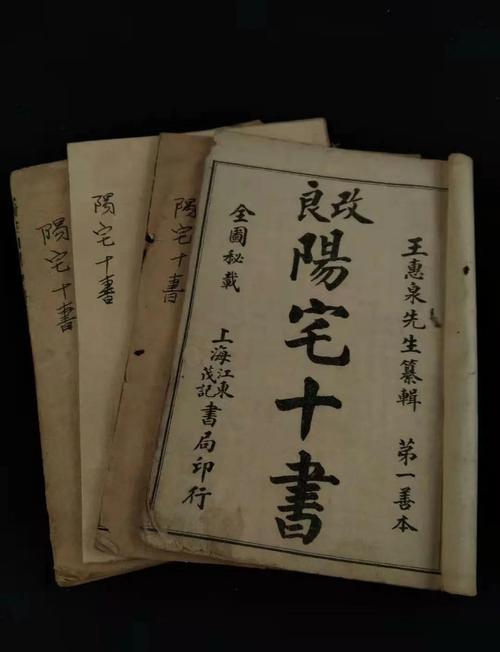 改良
陽宅十書
王惠泉先生纂輯 第一善本
全圖秘載
上海江東茂記書局印行
陽宅十書
陽宅十書
陽宅十書